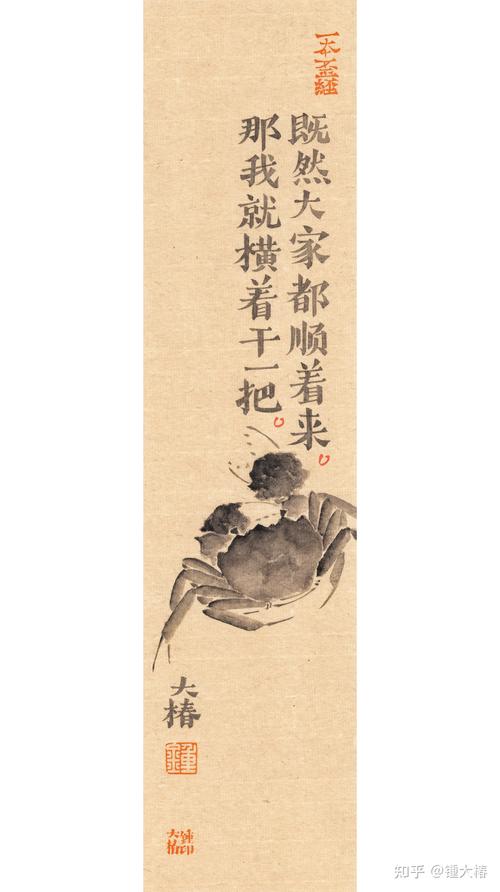 一本正经
既然大家都顺着来
那我就横着干一把
大椿
锺
大椿
锺印
知乎 @锺大椿